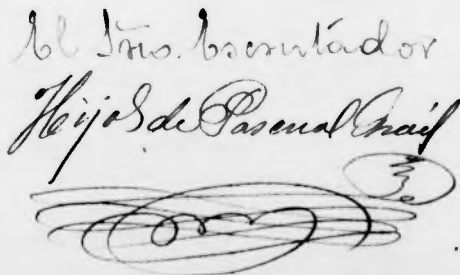 El Srio. Escrutador
Hijos de Pascual